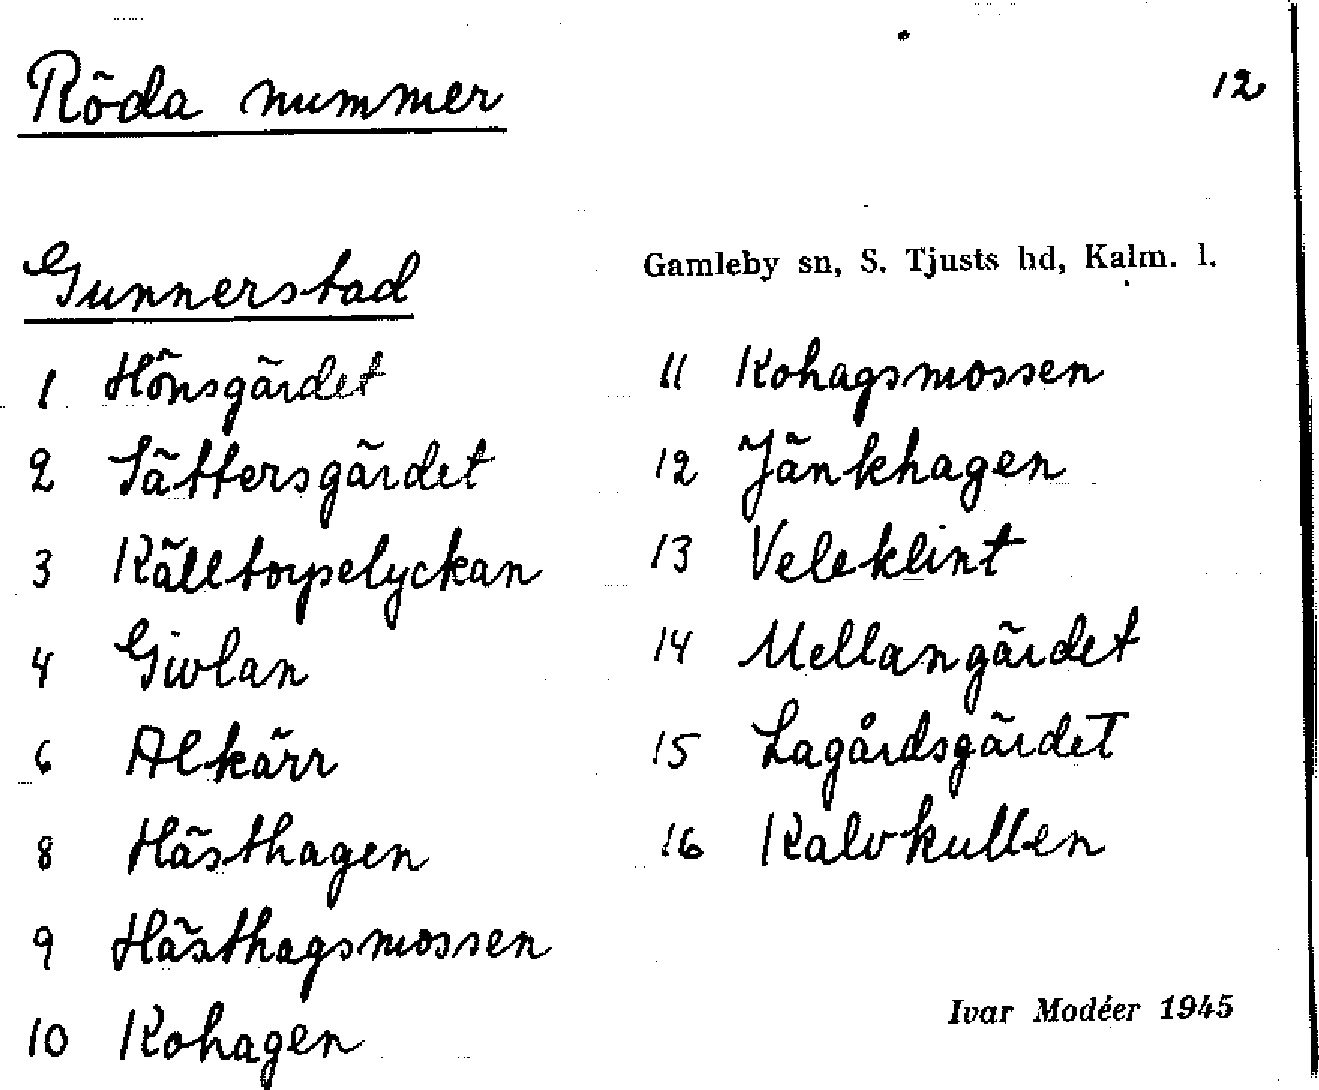 Röda nummer
12
Gunnerstad
Gamleby sn, S. Tjusts hd, Kalm. l.
1 Hönsgärdet
2 Sättersgärdet
3 Källtorpelyckan
4 Givlan
6 Alkärr
8 Hästhagen
9 Hästhagsmossen
10 Kohagen
11 Kohagsmossen
12 Jänkhagen
13 Veleklint
14 Mellangärdet
15 Lagårdsgärdet
16 Kalvkullen
Ivar Modéer 1945